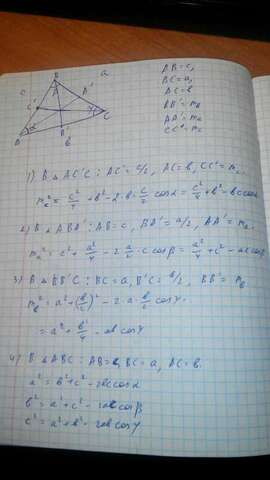 B
a
A'
C'
C
A
B'
b
AB=c,
BC=a,
AC=b
BB'=m_b
AA'=m_a
CC'=m_c
1) В △AC'C: AC'=c/2, AC=b, CC'=m_c.
m_c²=c²/4+b²-2·b·c/2 cosα=c²/4+b²-bc cosα
2) В △ABA': AB=c, BA'=a/2, AA'=m_a.
m_a²=c²+a²/4-2·a/2·c cosβ=a²/4+c²-ac cosβ
3) В △BB'C: BC=a, B'C=b/2, BB'=m_b
m_b²=a²+(b/2)²-2·a·b/2 cosγ.
=a²+b²/4-ab cosγ
4) В △ABC: AB=c, BC=a, AC=b.
a²=b²+c²-2bc cosα
b²=a²+c²-2ac cosβ
c²=a²+b²-2ab cosγ